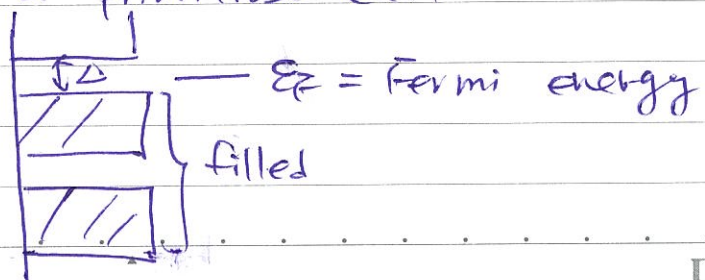 Δ — ε_F = Fermi energy
filled